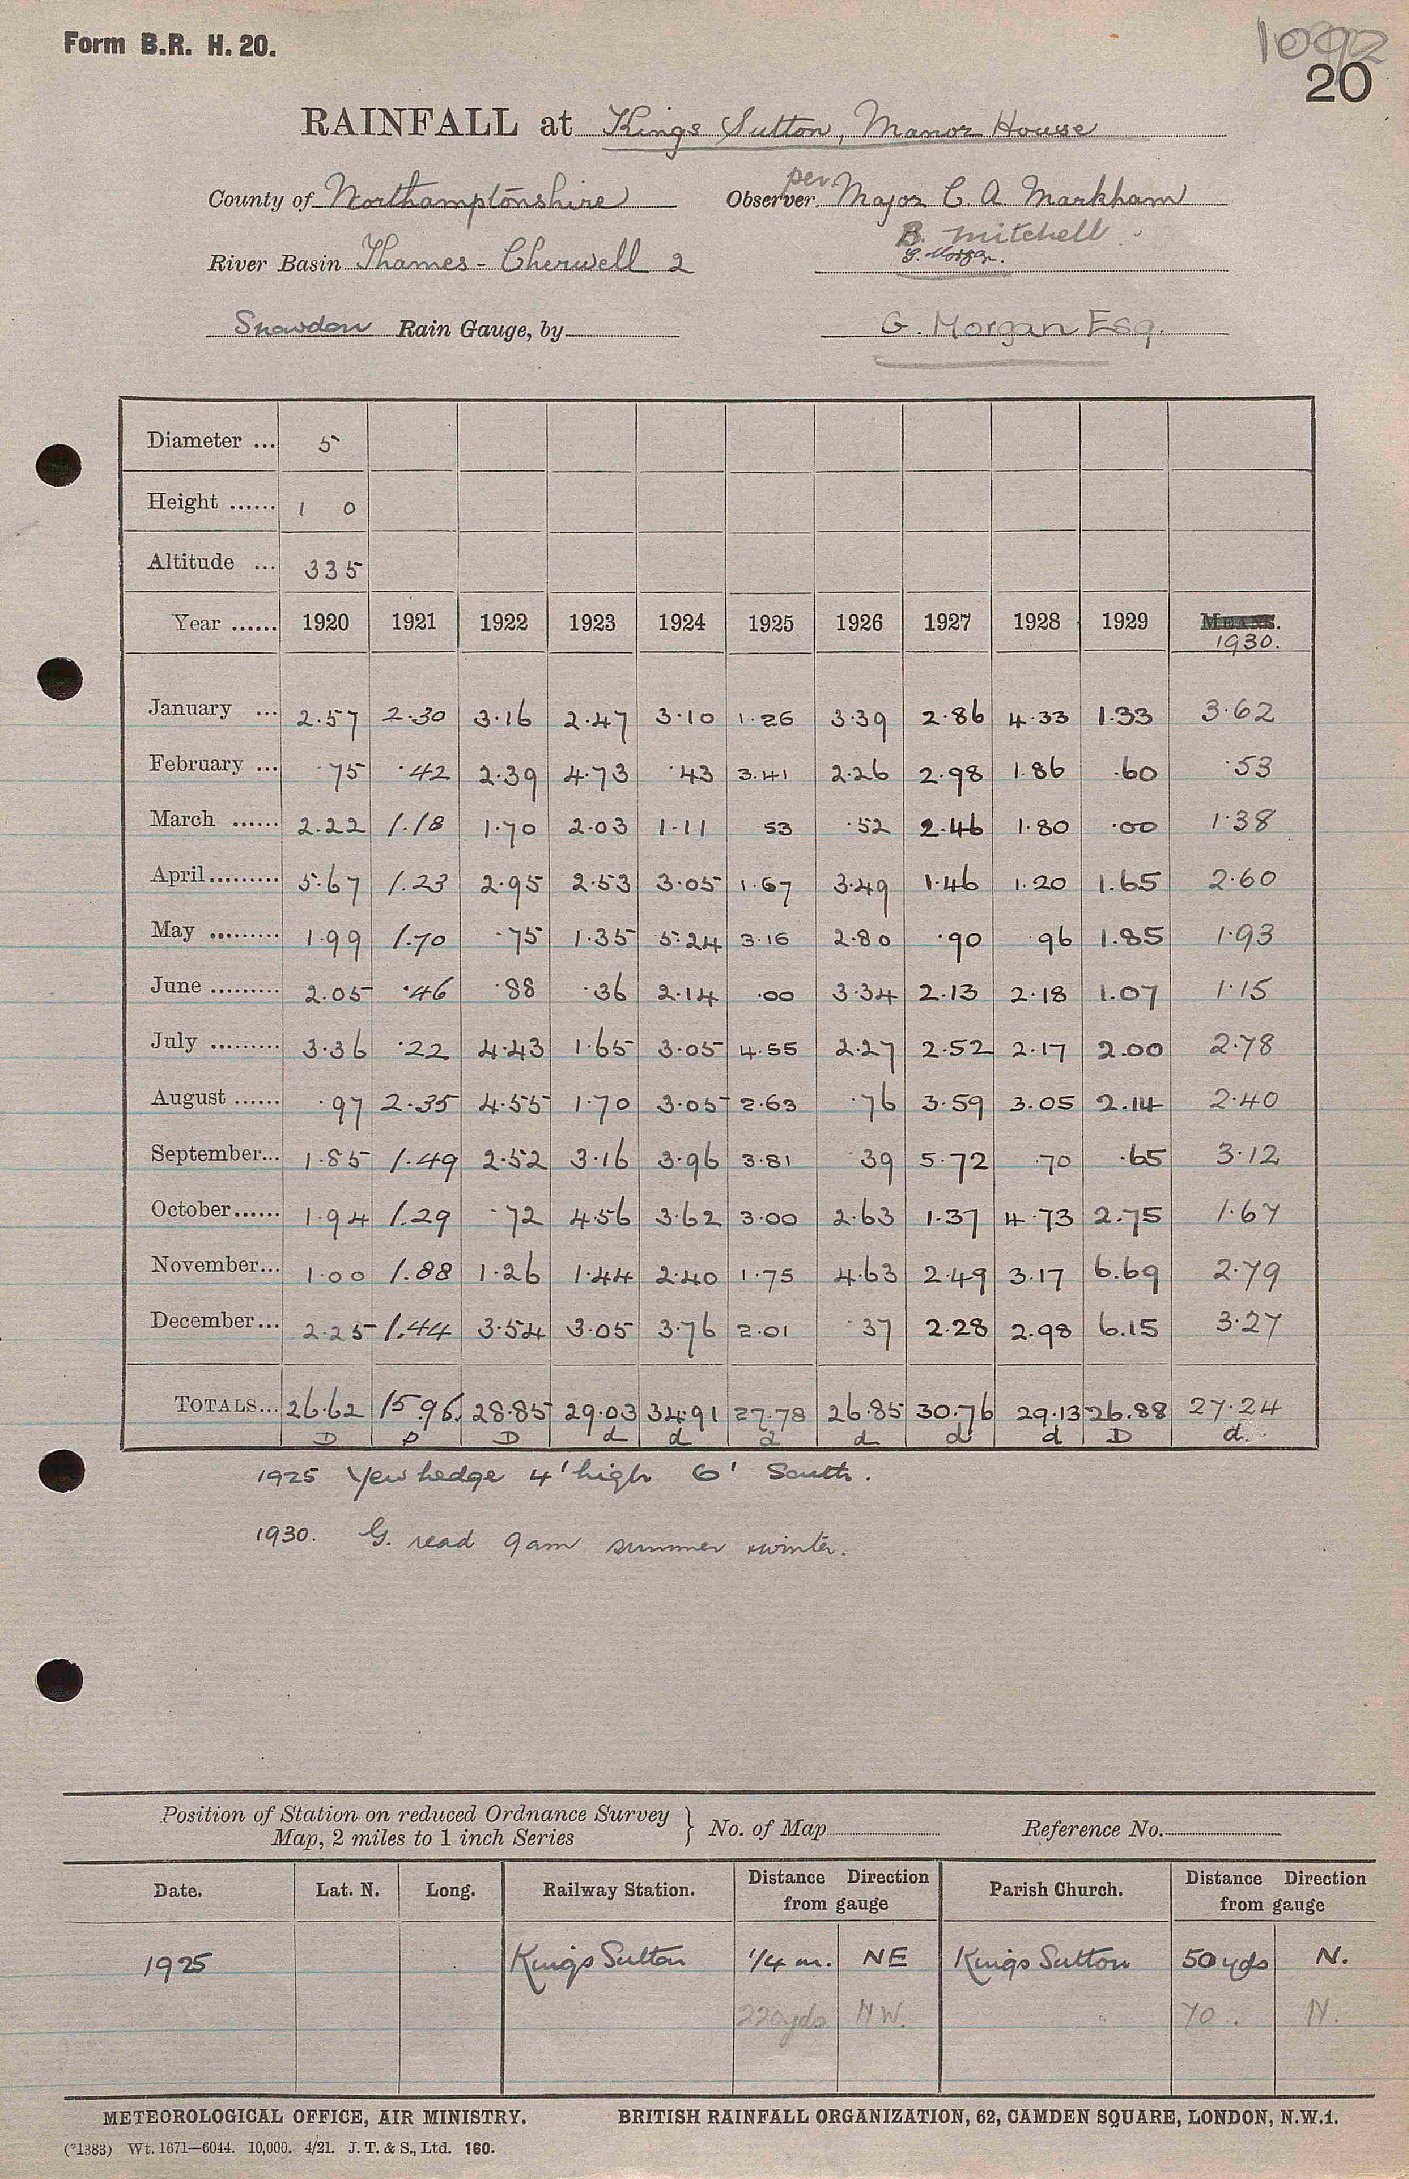 Form B.R. H. 20.
1092
20
RAINFALL at Kings Sutton, Manor House
County of Northamptonshire Observer per Major C. A. Markham
B. Mitchell
River Basin Thames - Cherwell 2 G. Morgan.
Snowdon Rain Gauge, by G. Morgan Esq.
Diameter ... 5
Height ...... 1 0
Altitude ... 335
Year ...... 1920 1921 1922 1923 1924 1925 1926 1927 1928 1929 MEANS.
1930.
January ... 2.57 2.30 3.16 2.47 3.10 1.26 3.39 2.86 4.33 1.33 3.62
February ... .75 .42 2.39 4.73 .43 3.41 2.26 2.98 1.86 .60 .53
March ...... 2.22 1.18 1.70 2.03 1.11 53 .52 2.46 1.80 .00 1.38
April......... 5.67 1.23 2.95 2.53 3.05 1.67 3.49 1.46 1.20 1.65 2.60
May ......... 1.99 1.70 .75 1.35 5.24 3.16 2.80 .90 .96 1.85 1.93
June ......... 2.05 .46 .88 .36 2.14 .00 3.34 2.13 2.18 1.07 1.15
July ......... 3.36 .22 4.43 1.65 3.05 4.55 2.27 2.52 2.17 2.00 2.78
August ...... .97 2.35 4.55 1.70 3.05 2.63 .76 3.59 3.05 2.14 2.40
September... 1.85 1.49 2.52 3.16 3.96 3.81 39 5.72 .70 .65 3.12
October...... 1.94 1.29 .72 4.56 3.62 3.00 2.63 1.37 4.73 2.75 1.67
November... 1.00 1.88 1.26 1.44 2.40 1.75 4.63 2.49 3.17 6.69 2.79
December... 2.25 1.44 3.54 3.05 3.76 2.01 .37 2.28 2.98 6.15 3.27
TOTALS... 26.62 15.96. 28.85 29.03 34.91 27.78 26.85 30.76 29.13 26.88 27.24
D D D d d d d d d D d.
1925 Yew hedge 4' high 6' South.
1930. G. read 9am summer & winter.
Position of Station on reduced Ordnance Survey
Map, 2 miles to 1 inch Series } No. of Map Reference No.
Date. Lat. N. Long. Railway Station. Distance Direction from gauge Parish Church. Distance Direction from gauge
1925 Kings Sutton 1/4 m. NE Kings Sutton 50 yds N.
220yds NW. " 70 . N.
METEOROLOGICAL OFFICE, AIR MINISTRY. BRITISH RAINFALL ORGANIZATION, 62, CAMDEN SQUARE, LONDON, N.W.1.
(*1383) Wt. 1671—6044. 10,000. 4/21. J. T. & S., Ltd. 160.